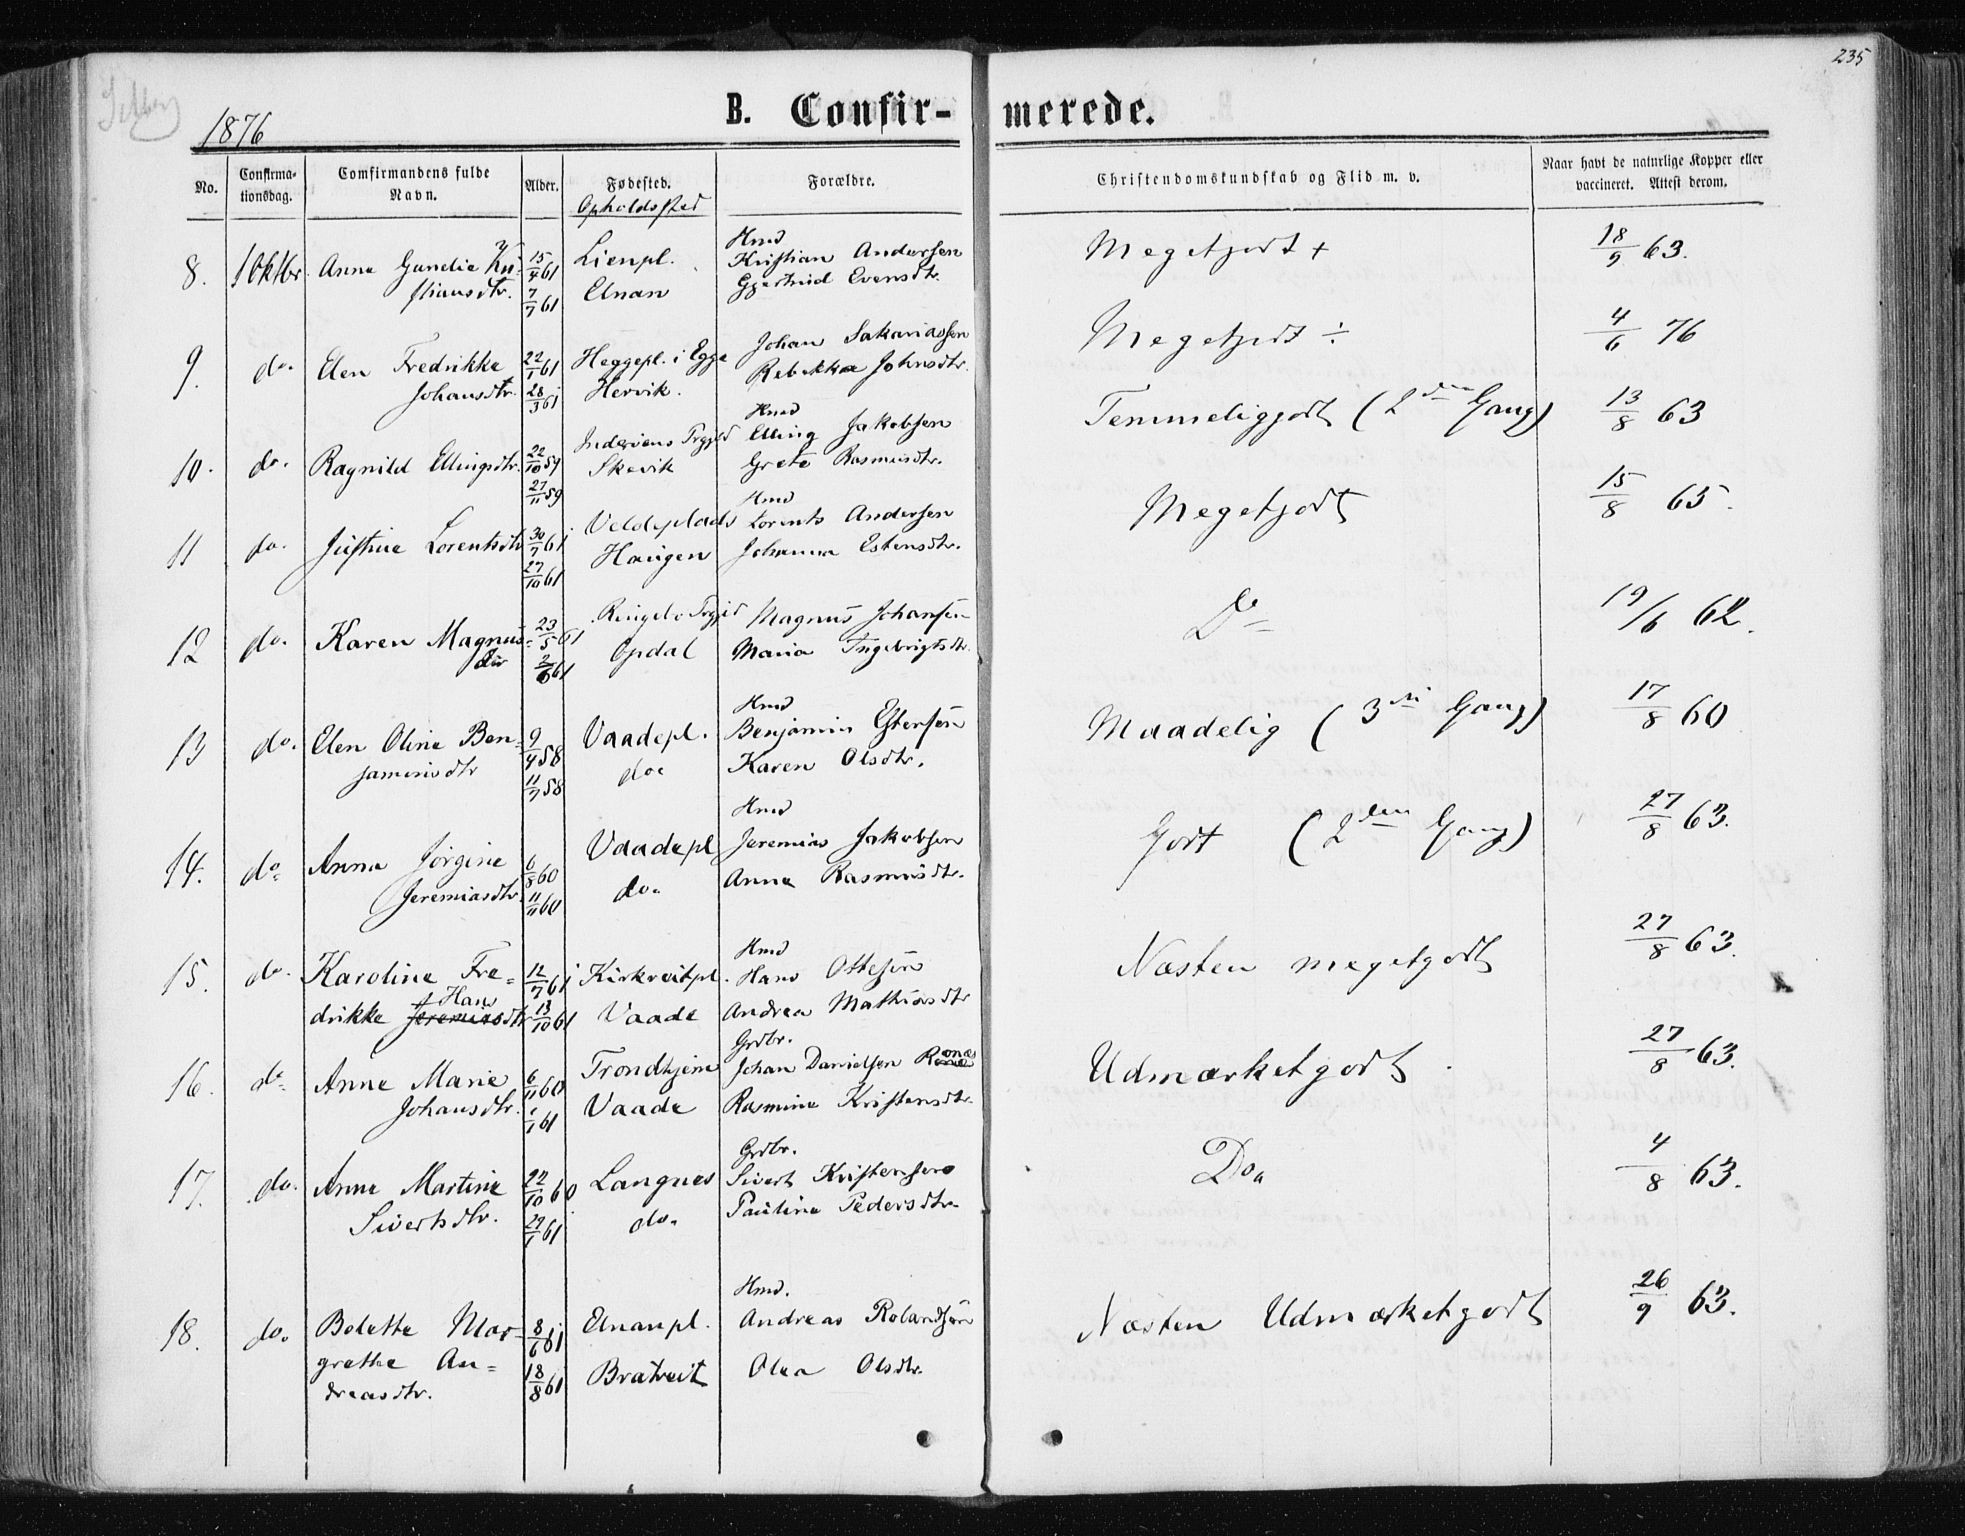 235
1876
B. Confir- merede.
No.
Confirma-
tionsdag.
Comfirmandens fulde
Navn.
Alder.
Fødested.
Opholdssted
Forældre.
Christendomskundskab og Flid m. v.
Naar havt de naturlige Kopper eller
vaccineret. Attest derom.
8. 1 Oktbr. Anna Gundie Kri- 15/4 61 Lienpl. Hmd
Kristian Andersen
stiansdtr. 7/7 61 Elnan Gjertrud Evensdtr.
Megetgodt + 18/9 63.
9. do. Elen Fredrikke 22/1 61 Heggepl. i Egge Johan Sakariassen
Johansdtr. 28/3 61 Hervik. Rebekka Johnsdtr.
Megetgodt ÷ 4/6 76
10. do. Ragnild Ellingsdtr. 22/10 59 Inderøens Prgjld Hmd
Elling Jakobsen
27/11 59 Skevik Grete Rasmusdtr.
Temmeliggodt (2den Gang) 13/8 63
11 do. Justine Lorentsdtr 30/7 61 Veldeplads Hmd
Lorents Andersen
27/10 61 Haugen Johanna Estensdtr.
Megetgodt 15/8 65.
12 do. Karen Magnus- 23/5 61 Ringebo Prgjld Magnus Johansen
dtr 2/6 61 Opdal Maria Ingebrigtsdtr.
Do 19/6 62.
13 do. Elen Oline Ben- 9/4 58 Vaadepl. Hmd
Benjamin Estensen
jaminsdtr 11/7 58 do. Karen Olsdtr.
Maadelig (3die Gang) 17/8 60
14. do. Anna Jørgine 6/8 60 Vaadepl Hmd
Jeremias Jakobsen
Jeremiasdtr. 11/11 60 do. Anna Rasmusdtr.
Godt (2den Gang) 27/8 63.
15. do. Karoline Fre- 12/7 61 Kirkreitpl. Hmd
Hans Ottesen
drikke Jeremias Hansdtr 13/10 61 Vaade Andrea Mathiasdtr
Næsten megetgodt 27/8 63.
16. do. Anne Marie 6/11 60 Trondhjem Grdbr.
Johan Danielsen
Johansdtr. 1/1 61 Vaade Rasmine Kristensdtr.
Udmærketgodt 27/8 63.
17. do. Anne Martine 22/10 60 Langnes Grdbr.
Sivert Kristensen
Sivertsdtr. 29/1 61 do. Pauline Pedersdtr.
Do. 4/8 63.
18. do. Bolette Mar- 8/6 61 Elnanpl. Hmd.
Andreas Rolandsen
grethe An- 18/8 61 Bratreit Olea Olsdtr.
dreasdtr.
Næsten Udmærketgodt 26/9 63.